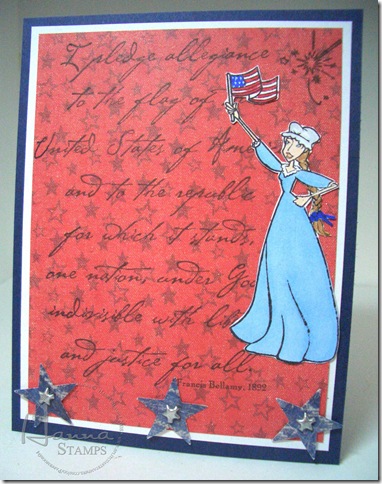 I pledge allegiance
to the flag of
United States of Ame
and to the republic
for which it stands,
one nation, under Go
indivisible with li
and justice for all.
Francis Bellamy, 1892
Hanna
STAMPS